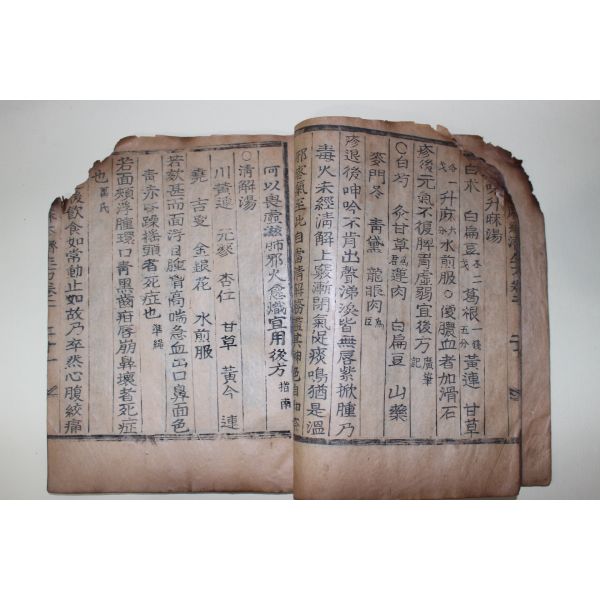 味升麻湯
白朮 白扁豆 葛根 黃連 甘草
升麻 水煎服○痰膿血者加滑石
疹後元氣不復脾胃虛弱宜後方
○白芍 炙甘草 蓮肉 白扁豆 山藥
麥門冬 青黛 龍眼肉
疹退後呻吟不肯出聲涕淚皆無唇紫掀腫乃
毒火未經清解上竅漸閉氣促痰鳴猶是溫
邪客氣至此自當清解
何以畏虛滋師邪火愈熾宜用後方 指南
○清解湯
川黃連 元參 杏仁 甘草 黃今 連
堯 吉更 金銀花 水煎服
若欬甚而面浮目腫脣高喘急血出口鼻面色
靑赤 躁搖頭者死症也 準繩
若面頰浮腫環口青黑齒疳唇崩鼻壞者死症
也
後飮食如常動止如故乃卒然心腹絞痛